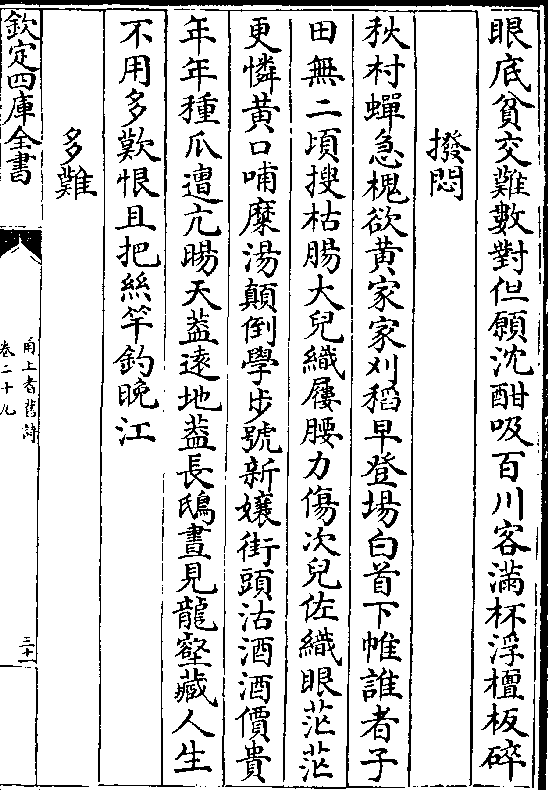 眼底貧交難數對但願沈酣吸百川客滿杯浮檀板碎
撥悶
秋村蟬急槐欲黄家家刈稻早登場白首下帷誰者子
田無二頃搜枯腸大兒織屨腰力傷次兒佐織眼茫茫
更憐黄口哺糜湯顛倒學步號新孃街頭沽酒酒價貴
年年種瓜遭亢暘天葢遠地葢長鴟晝見龍壑藏人生
不用多歎恨且把絲竿釣晚江
多難
欽定四庫全書
甬上耆舊詩
卷二十九
三十一